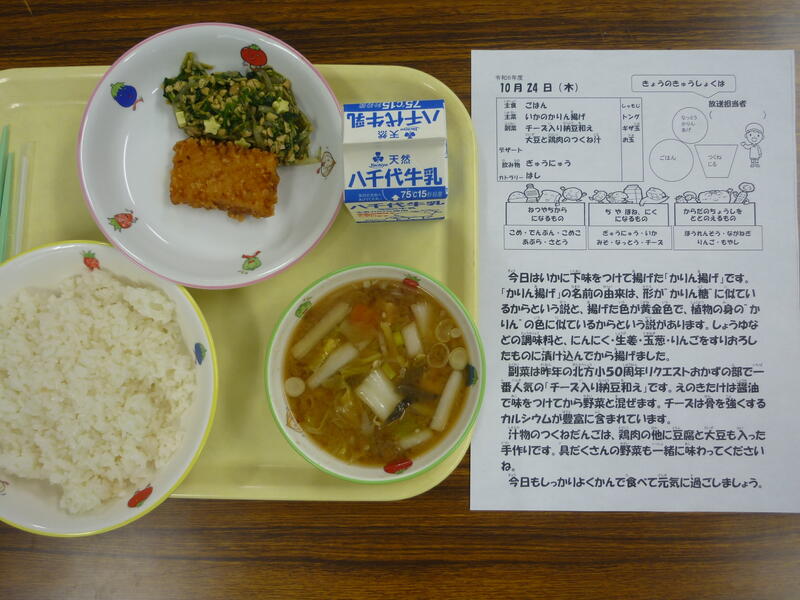 75℃15秒殺菌
八千代牛乳
天然
Yachiyo
八千代牛乳
75℃15秒殺菌
八千代牛乳
令和6年度
10月24日（木）
きょうのきゅうしょくは
主食 ごはん しゃもじ
主菜 いかのかりん揚げ トング
副菜 チーズ入り納豆和え ギザ玉
大豆と鶏肉のつくね汁 お玉
デザート
飲み物 ぎゅうにゅう
カトラリー はし
放送担当者
（ ）
なっとう
かりん
あげ
ごはん
つくね
じる
ねつやちから
になるもの
ちやほね、にく
になるもの
からだのちょうしを
ととのえるもの
こめ・でんぷん・こめこ
あぶら・さとう
ぎゅうにゅう・いか
みそ・なっとう・チーズ
ほうれんそう・ながねぎ
りんご・もやし
今日はいかに下味をつけて揚げた「かりん揚げ」です。
「かりん揚げ」の名前の由来は、形が“かりん糖”に似てい
るからという説と、揚げた色が黄金色で、植物の身の“か
りん”の色に似ているからという説があります。しょうゆな
どの調味料と、にんにく・生姜・玉葱・りんごをすりおろし
たものに漬け込んでから揚げました。
副菜は昨年の北方小50周年リクエストおかずの部で一
番人気の「チーズ入り納豆和え」です。えのきたけは醤油
で味をつけてから野菜と混ぜます。チーズは骨を強くする
カルシウムが豊富に含まれています。
汁物のつくねだんごは、鶏肉の他に豆腐と大豆も入った
手作りです。具だくさんの野菜も一緒に味わってください
ね。
今日もしっかりよくかんで食べて元気に過ごしましょう。